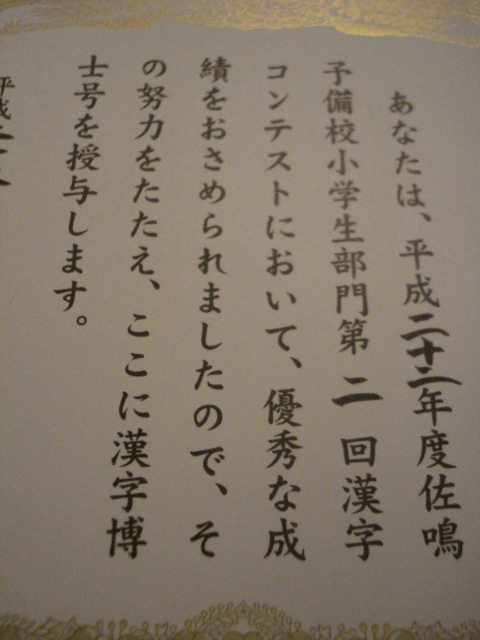 あなたは、平成二十二年度佐鳴
予備校小学生部門第二回漢字
コンテストにおいて、優秀な成
績をおさめられましたので、そ
の努力をたたえ、ここに漢字博
士号を授与します。
平成二十